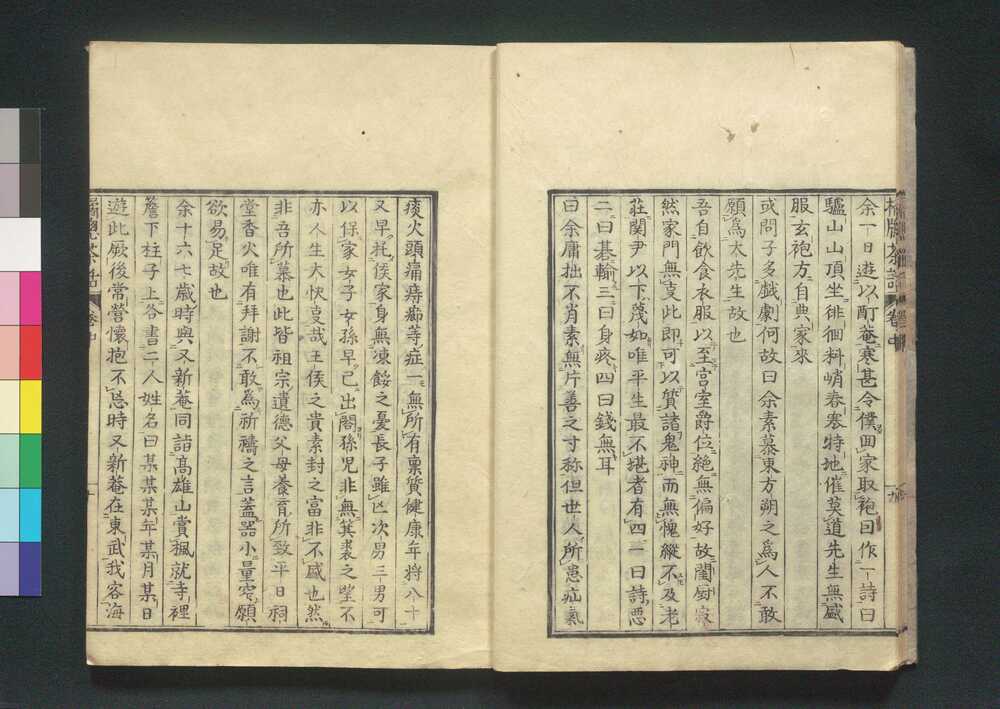 橘牕茶話 卷中
余一日遊以酊菴寒甚令僕囬家取袍曰作一詩曰
驢山山頂坐徘徊料峭春寒特地催莫道先生無盛
服玄袍方自典家來
或問子多戯劇何故曰余素慕東方朔之為人不敢
願為太先生故也
吾自飲食衣服以至宮室爵位絶無偏好故閨厨寂
然家門無㕝此即可以質諸鬼神而無愧縱不及老
莊関尹以下蔑如唯平生最不堪者有四一曰詩悪
二曰碁輸三曰身疼四曰錢無耳
曰余庸拙不肖素無片善之寸称但世人所患疝氣
痰火頭痛痔癤等症一無所有禀質健康年將八十
又早托侯家身無凍餒之憂長子雖凶次男三男可
以保家女子女孫早已出閣孫児非無箕裘之望不
亦人生大快㕝哉王侯之貴素封之富非不盛也然
非吾所慕也此皆祖宗遺德父母養育所致平日祠
堂香火唯有拜謝不敢為祈禱之言蓋器小量窄願
欲易足故也
余十六七歳時與又新菴同詣高雄山賞楓就寺裡
簷下柱子上各書二人姓名曰某某某年某月某日
遊此厥後常營懐抱不忘時又新菴在東武我客海
橘牕茶話 卷中